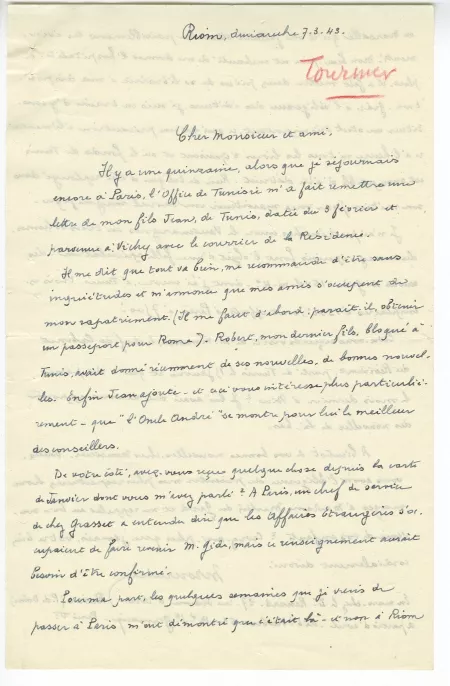 Riom, dimanche 7.3.43.
Tournier
Cher Monsieur et ami,
Il y a une quinzaine, alors que je séjournais
encore à Paris, l'Office de Tunisie m'a fait remettre une
lettre de mon fils Jean, de Tunis, datée du 3 février et
parvenue à Vichy avec le courrier de la Résidence.
Il me dit que tout va bien, me recommande d'être sans
inquiétudes et m'annonce que mes amis s'occupent de
mon rapatriement. (Il me faut d'abord, paraît-il, obtenir
un passeport pour Rome). Robert, mon dernier fils, bloqué à
Tunis, avait donné récemment de ses nouvelles, de bonnes nouvel-
les. Enfin Jean ajoute - et ceci vous intéresse plus particuliè-
rement - que "l'Oncle André" se montre pour lui le meilleur
des conseillers.
De votre côté, avez-vous reçu quelque chose depuis la carte
de Janvier dont vous m'avez parlé? A Paris, un chef de service
de chez Grasset a entendu dire que les Affaires étrangères s'oc-
cupaient de faire revenir M. Gide, mais ce renseignement aurait
besoin d'être confirmé.
Pour ma part, les quelques semaines que je viens de
passer à Paris m'ont démontré que c'était là - et non à Riom